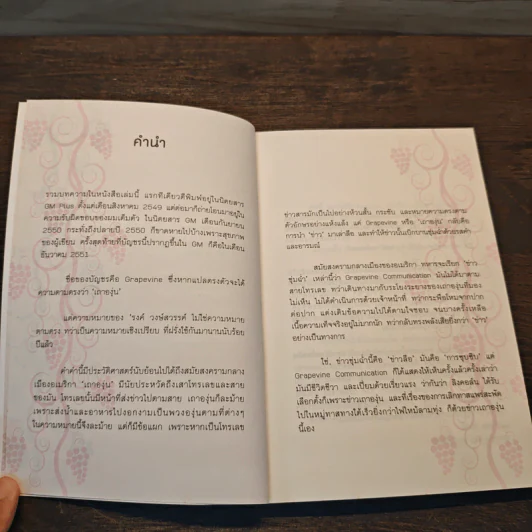 คำนำ
รวมบทความในหนังสือเล่มนี้ แรกทีเดียวตีพิมพ์อยู่ในนิตยสาร
GM Plus ตั้งแต่เดือนสิงหาคม 2549 แต่ต่อมาก็ถ่ายโอนมาอยู่ใน
ความรับผิดชอบของผมเต็มตัว ในนิตยสาร GM เดือนกันยายน
2550 กระทั่งถึงปลายปี 2550 ก็ขาดหายไปบ้างเพราะสุขภาพ
ของผู้เขียน ครั้งสุดท้ายที่บัญชรนี้ปรากฏขึ้นใน GM ก็คือในเดือน
ธันวาคม 2551
ชื่อของบัญชรคือ Grapevine ซึ่งหากแปลตรงตัวจะได้
ความตามตรงว่า 'เถาองุ่น'
แต่ความหมายของ 'รงค์ วงษ์สวรรค์ ไม่ใช่ความหมาย
ตามตรง ทว่าเป็นความหมายเชิงเปรียบ ที่ฝรั่งใช้กันมานานนับร้อย
ปีแล้ว
คำคำนี้มีประวัติศาสตร์นับย้อนไปได้ถึงสมัยสงครามกลาง
เมืองอเมริกา 'เถาองุ่น' มีนัยประหวัดถึงเสาโทรเลขและสาย
ของมัน โทรเลขนั้นมีหน้าที่ส่งข่าวไปตามสาย เถาองุ่นก็ละม้าย
เพราะส่งน้ำและอาหารไปงอกงามเป็นพวงองุ่นตามที่ต่างๆ
ในความหมายนี้จึงละม้าย แต่ก็มีข้อแผก เพราะหากเป็นโทรเลข
ข่าวสารมักเป็นไปอย่างห้วนสั้น กระชับ และหมายความตรงตาม
ตัวอักษรอย่างแห้งแล้ง แต่ Grapevine หรือ 'เถาองุ่น' กลับคือ
การนำ 'ข่าว' มาเล่าลือ และทำให้ข่าวนั้นเบิกบานชุ่มฉ่ำด้วยรสคำ
และอารมณ์
สมัยสงครามกลางเมืองของอเมริกา ทหารจะเรียก 'ข่าว
ชุ่มฉ่ำ' เหล่านี้ว่า Grapevine Communication มันไม่ได้มาตาม
สายโทรเลข ทว่าเดินทางมากับระโยงระยางของเถาองุ่นที่มอง
ไม่เห็น ไม่ได้ดำเนินการด้วยเจ้าหน้าที่ ทว่ากระพือโหมจากปาก
ต่อปาก แต่งเติมข้อความไปได้ตามใจชอบ จนบางครั้งเหลือ
เนื้อความเท็จจริงอยู่ไม่มากนัก ทว่ากลับทรงพลังเสียยิ่งกว่า 'ข่าว'
อย่างเป็นทางการ
ใช่, ข่าวชุ่มฉ่ำนี้คือ 'ข่าวลือ' มันคือ 'การซุบซิบ' แต่
Grapevine Communication ก็ได้แสดงให้เห็นครั้งแล้วครั้งเล่าว่า
มันมีชีวิตชีวา และเปี่ยมด้วยเรี่ยวแรง ว่ากันว่า ลิงคอล์น ได้รับ
เลือกตั้งก็เพราะข่าวเถาองุ่น และที่เรื่องของการเลิกทาสแพร่สะพัด
ไปในหมู่ทาสทางใต้เร็วยิ่งกว่าไฟไหม้ลามทุ่ง ก็ด้วยข่าวเถาองุ่น
นี้เอง